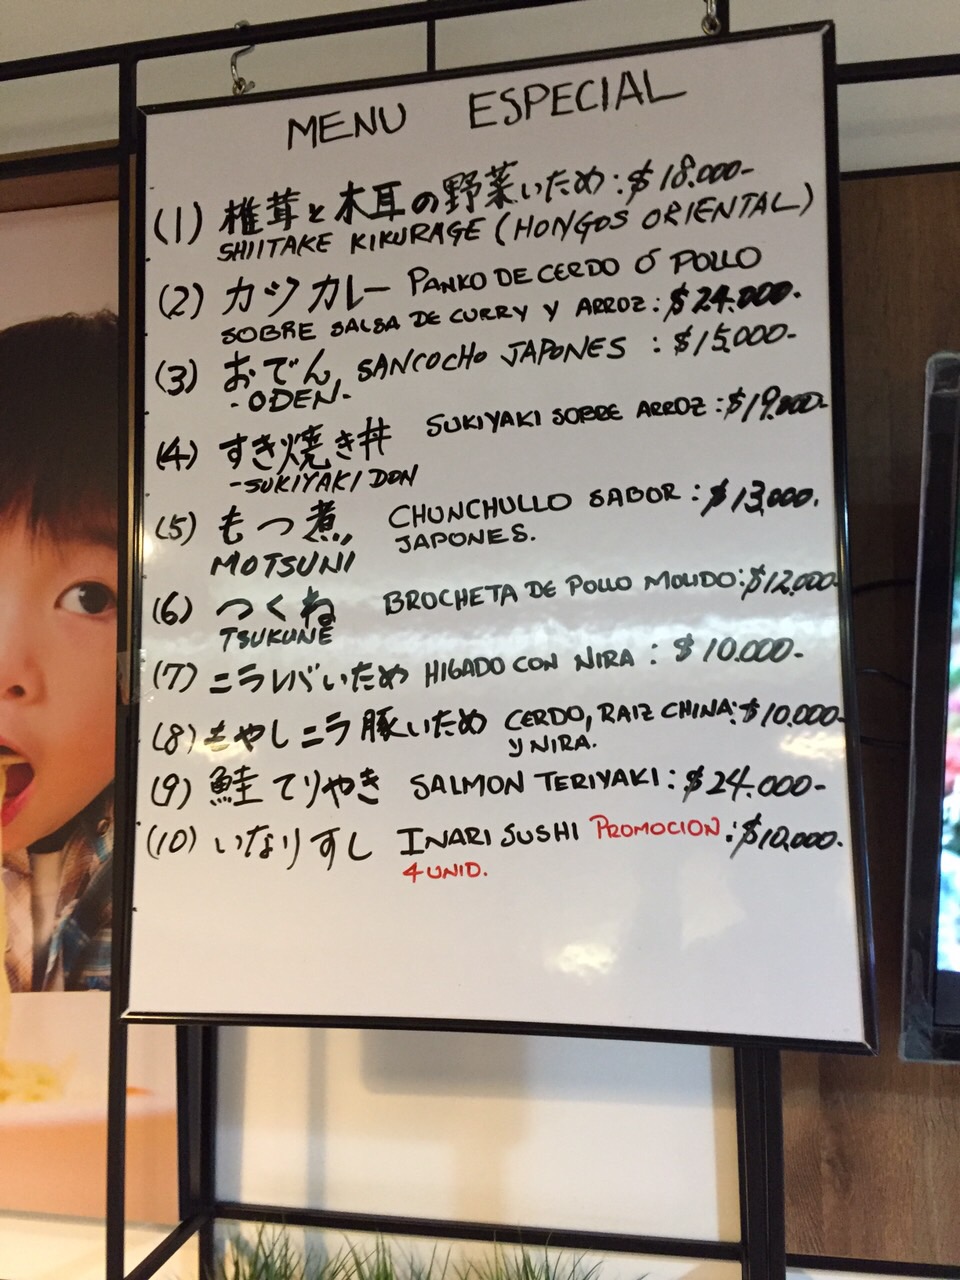 MENU ESPECIAL
(1) 椎茸と木耳の野菜いため: $18.000-
SHIITAKE KIKURAGE (HONGOS ORIENTAL)
(2) カツカレー PANKO DE CERDO Ó POLLO
SOBRE SALSA DE CURRY Y ARROZ: $24.000.
(3) おでん SANCOCHO JAPONES : $15.000-
-ODEN-
(4) すき焼き丼 SUKIYAKI SOBRE ARROZ: $19.000-
-SUKIYAKI DON
(5) もつ煮 CHUNCHULLO SABOR : $13,000.
MOTSUNI JAPONES.
(6) つくね BROCHETA DE POLLO MOLIDO: $12,000-
TSUKUNE
(7) ニラレバいため HIGADO CON NIRA : $10.000-
(8) もやしニラ豚いため CERDO, RAIZ CHINA: $10.000-
Y NIRA.
(9) 鮭てりやき SALMON TERIYAKI: $24.000-
(10) いなりすし INARI SUSHI PROMOCION. : $10,000.
4 UNID.